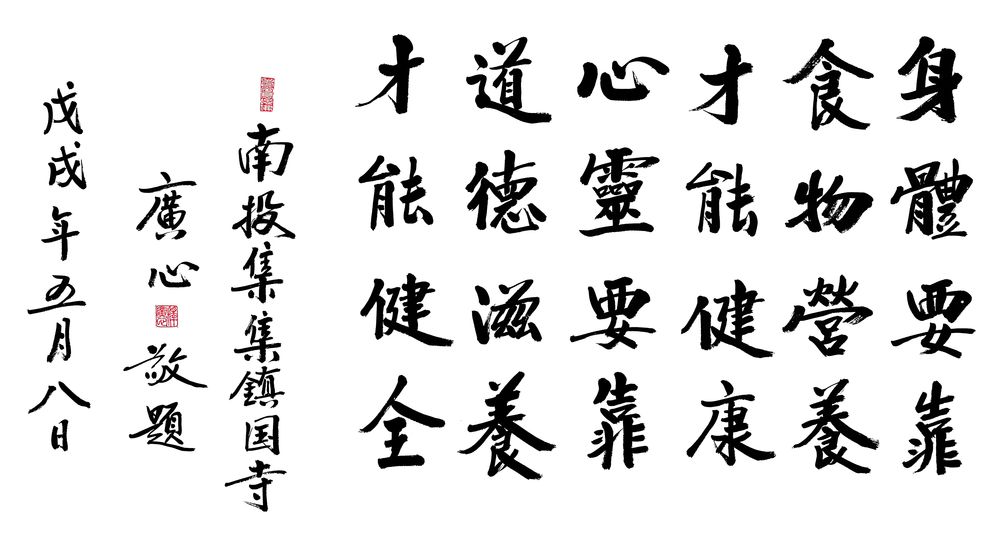 身體要靠
食物營養
才能健康
心靈要靠
道德滋養
才能健全
南投集集鎮国寺
廣心敬題
戊戌年五月八日